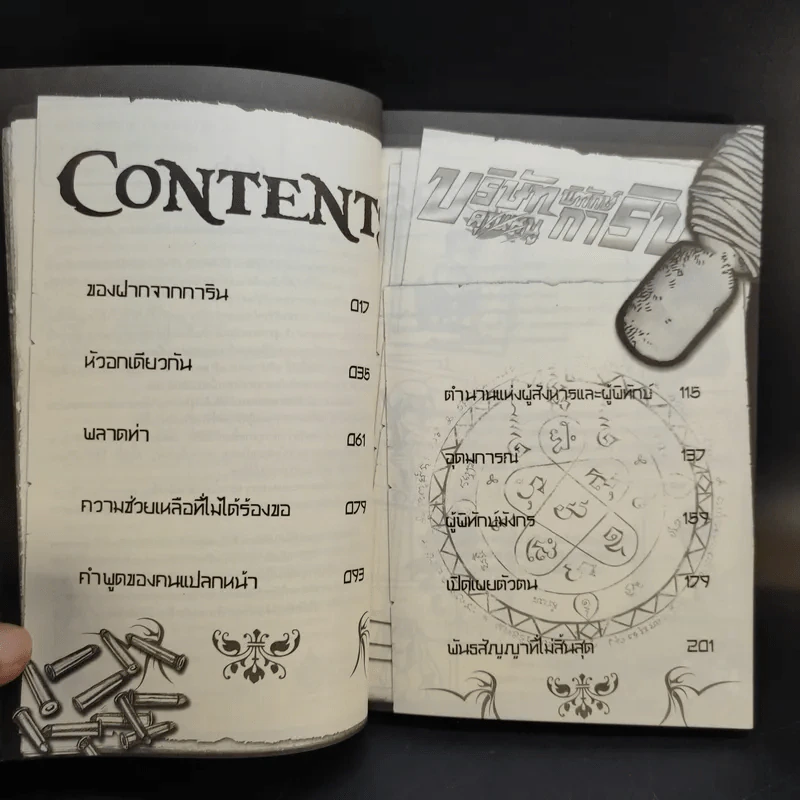 CONTENT
ของฝากจากการิน 017
หัวอกเดียวกัน 035
พลาดท่า 061
ความช่วยเหลือที่ไม่ได้ร้องขอ 079
คำพูดของคนแปลกหน้า 093
บริษัท
พิทักษ์
ตำนานแห่งผู้สังหารและผู้พิทักษ์ 115
อุดมการณ์ 137
ผู้พิทักษ์มังกร 159
เปิดเผยตัวตน 179
พันธสัญญาที่ไม่สิ้นสุด 201